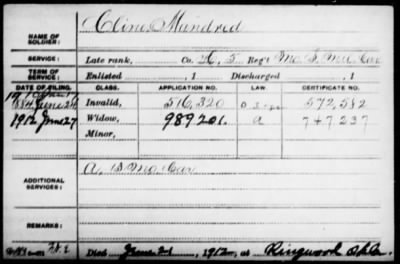 NAME OF SOLDIER: Cline Mandred
SERVICE: Late rank, Co. H, 5 Reg't Mo. S. M. Cav
TERM OF SERVICE: Enlisted , 1 Discharged , 1
DATE OF FILING. CLASS. APPLICATION NO. LAW CERTIFICATE NO.
Invalid, 516,320 572,582
1912 June 27 Widow, 989201. a 747237
Minor,
ADDITIONAL SERVICES: A, 13 Mo Cav
REMARKS:
Died June 21, 1912, at Ringwood Okla.